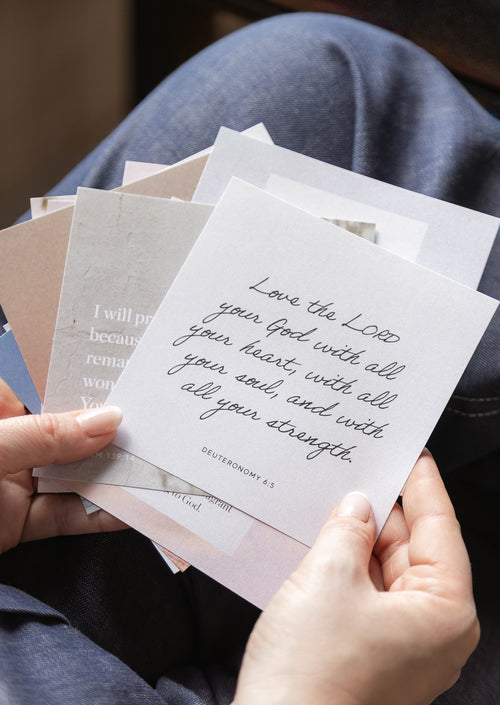 Love the LORD
your God with all
your heart, with all
your soul, and with
all your strength.
DEUTERONOMY 6:5
I will
because
139:14
to God.